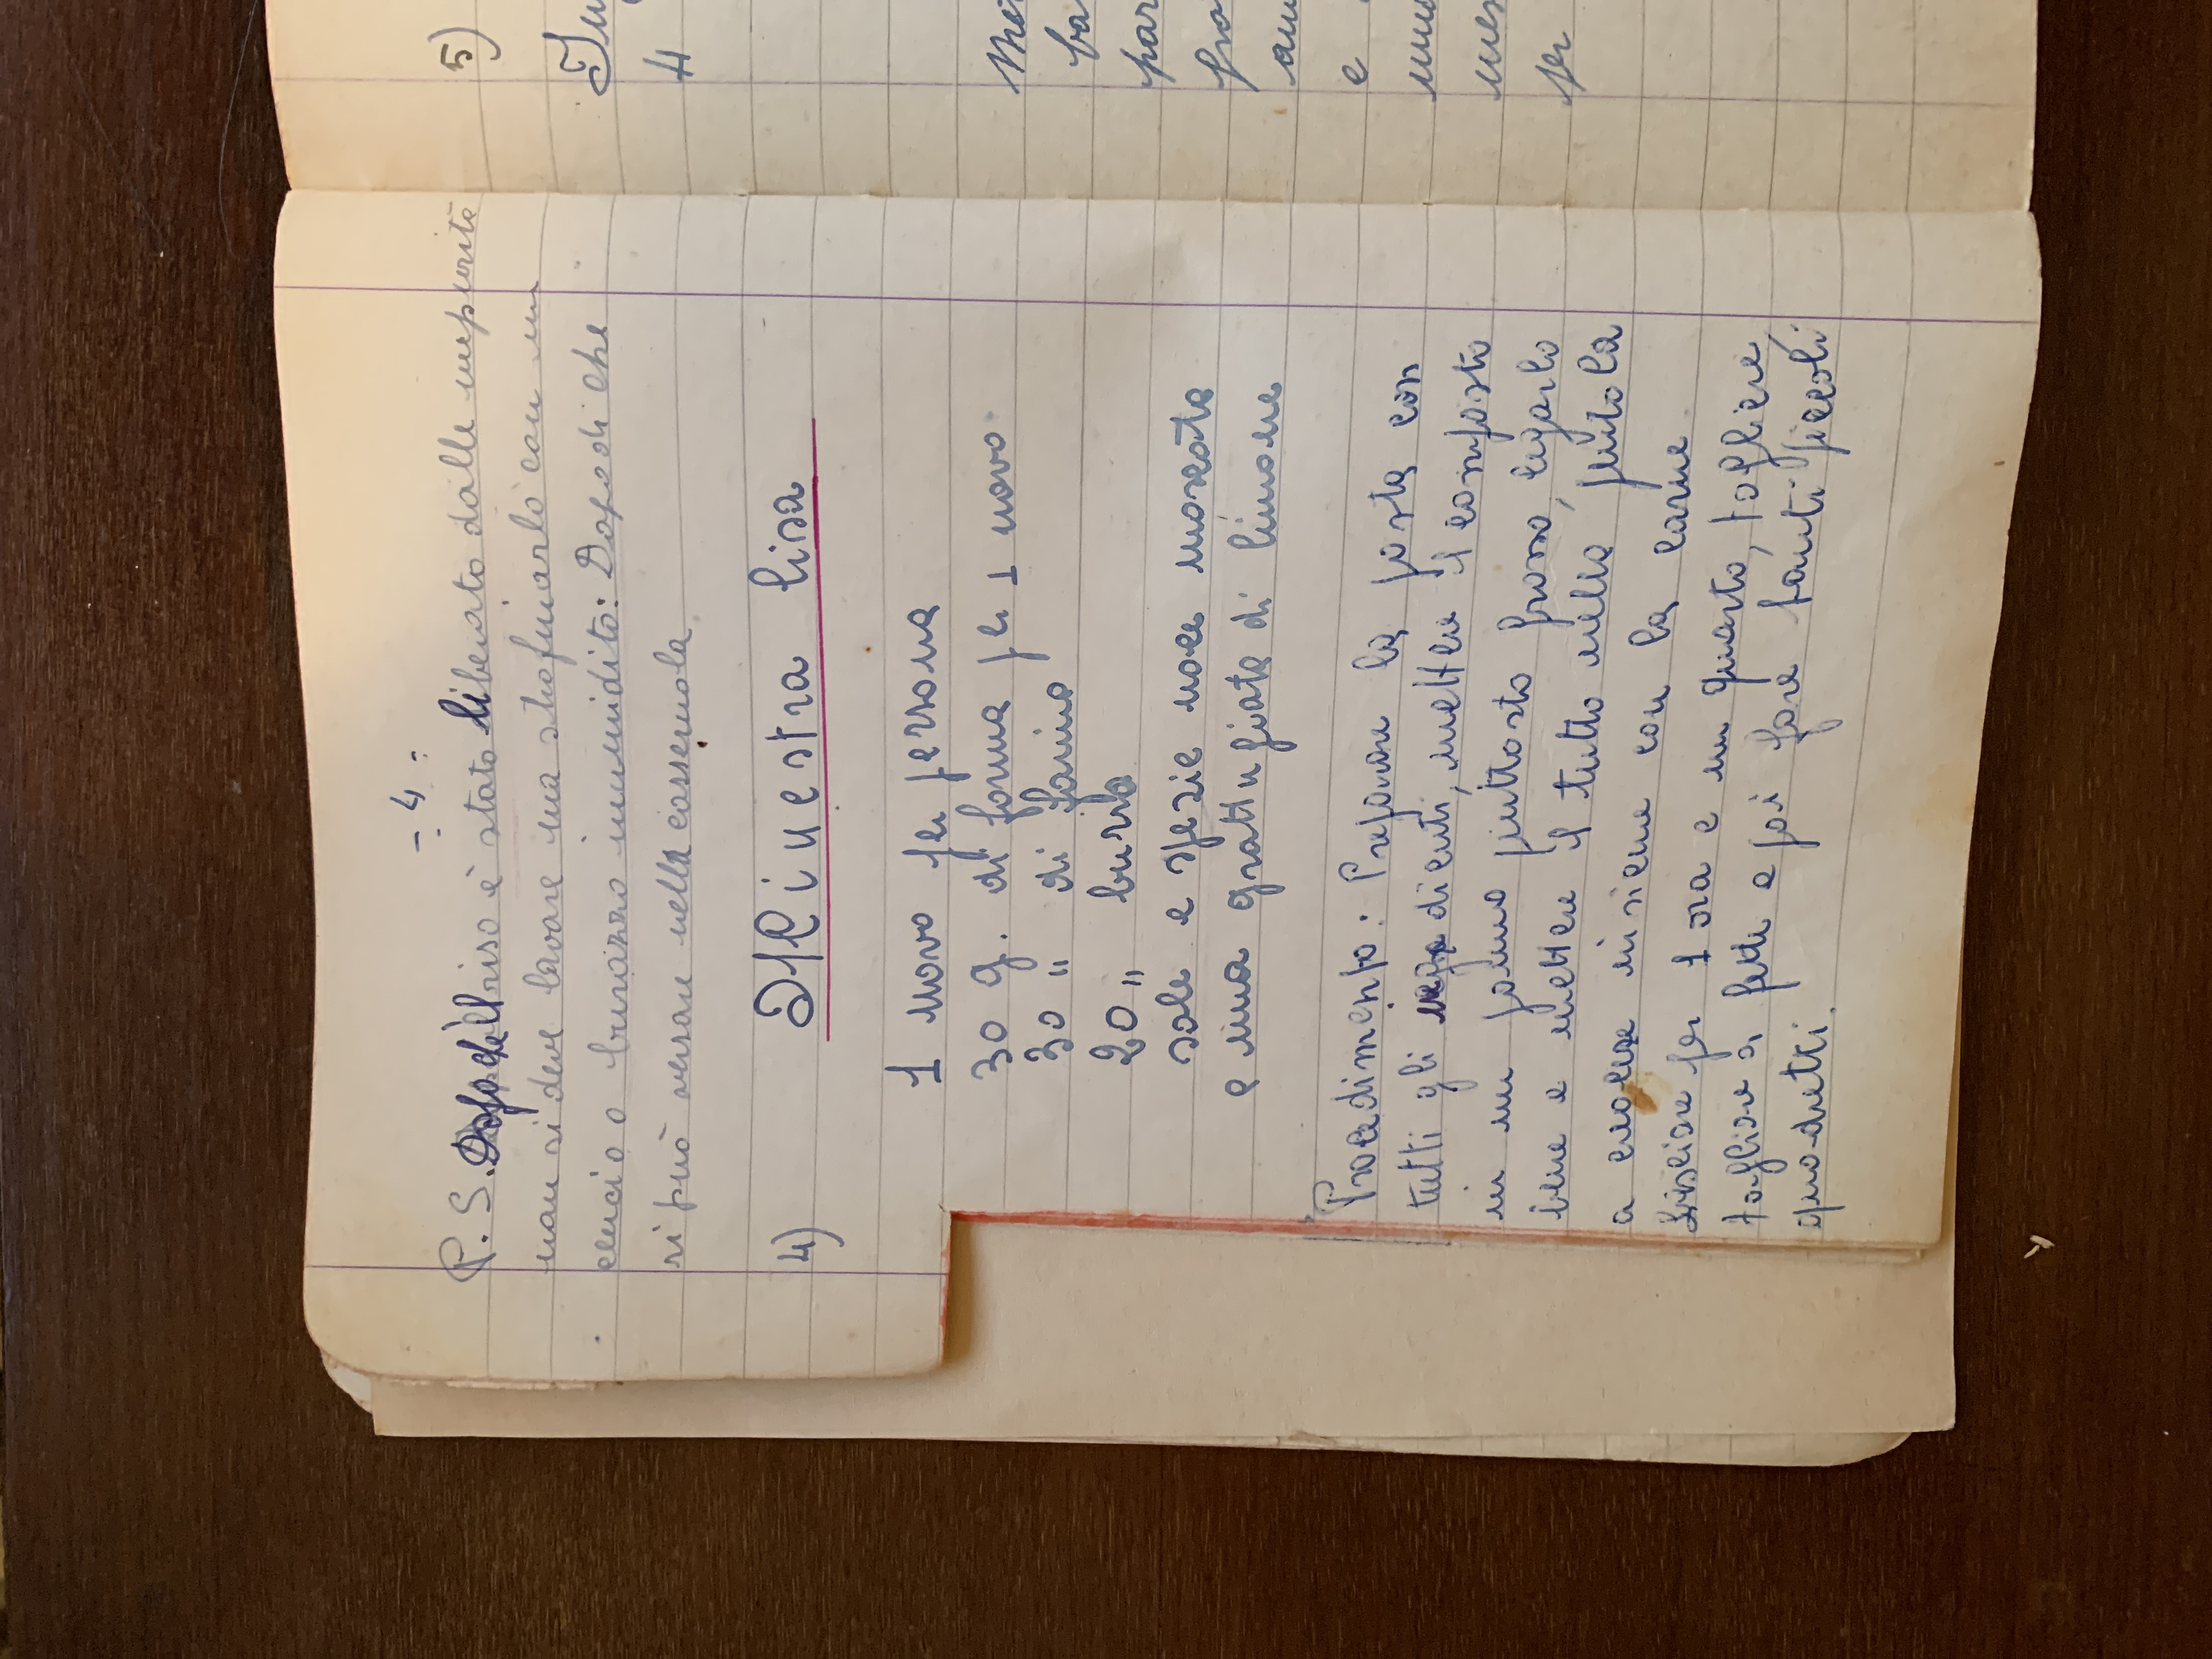 - 4 -
P. S. Dopo che il riso è stato liberato dalle impurità
non si deve lavare ma strofinarlo con un
cencio o burazzo inumidito: Dopodi che
si può versare nella casseruola
4) Minestra lisa
1 uovo per persona
30 g. di forma per 1 uovo
30 " di farina
20 " burro
sale e spezie noce moscata
e una grattugiata di limone
Procedimento: Preparare la pasta con
tutti gli ingredienti, mettere il composto
in un panno piuttosto grosso, legarlo
bene e mettere il tutto nella pentola
a cuocere insieme con la carne
Lasciare per 1 ora e un quarto, togliere,
tagliare a fette e poi fare tanti piccoli
quadretti.
5)
4
e
per